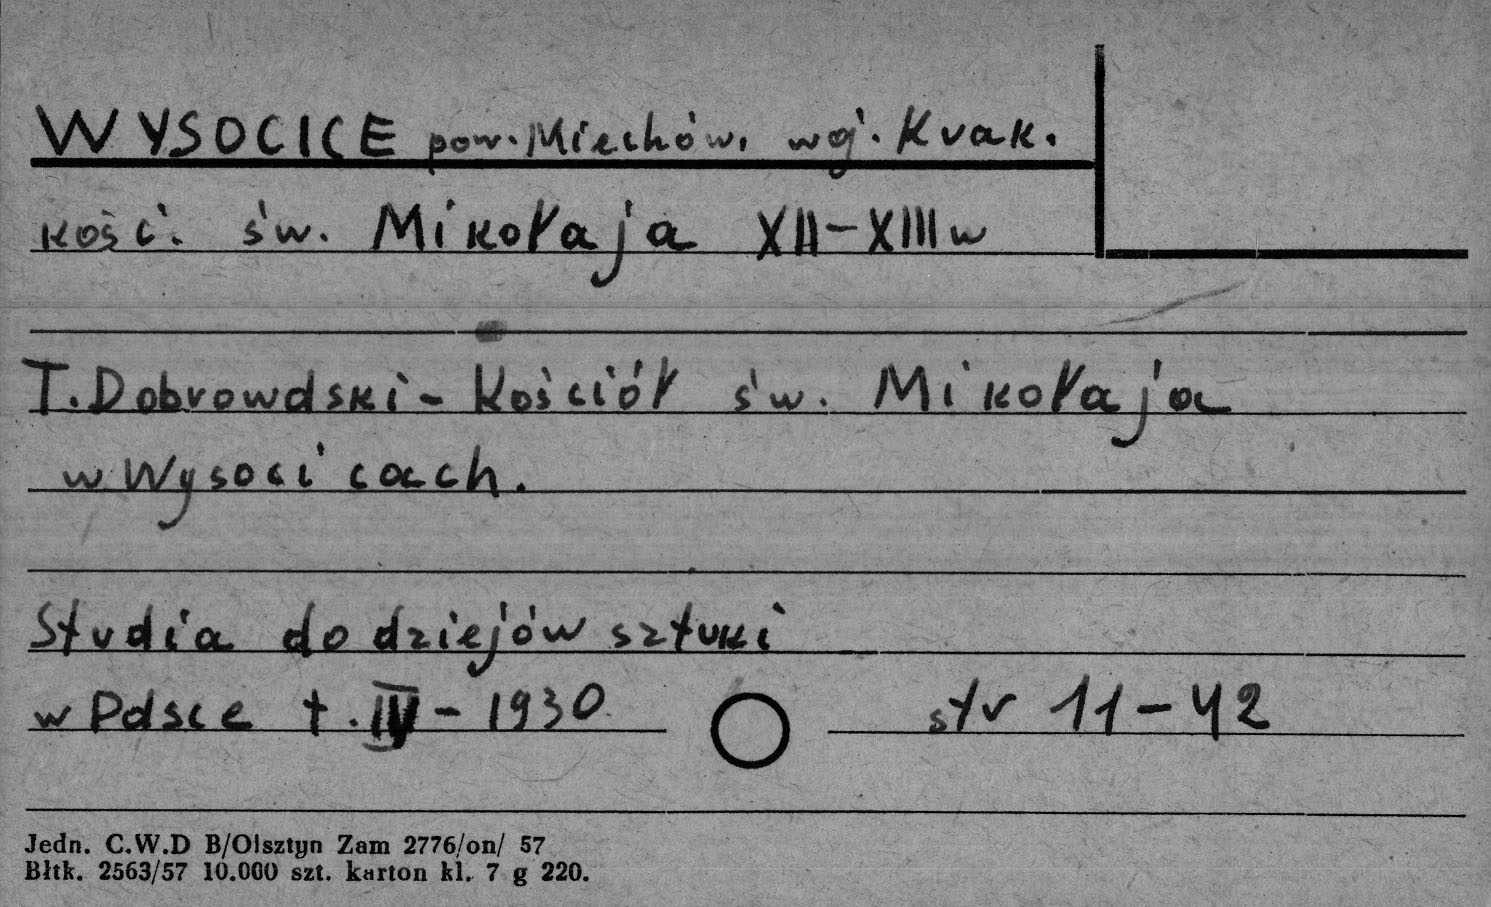 WYSOCICE pow. Miechów. woj. Krak.
kość. św. Mikołaja XII-XIII w
T. Dobrowolski - Kościół św. Mikołaja
w Wysocicach.
Studia do dziejów sztuki
w Polsce t. IV - 1930 str 11-42
Jedn. C.W.D B/Olsztyn Zam 2776/on/ 57
Błtk. 2563/57 10.000 szt. karton kl. 7 g 220.